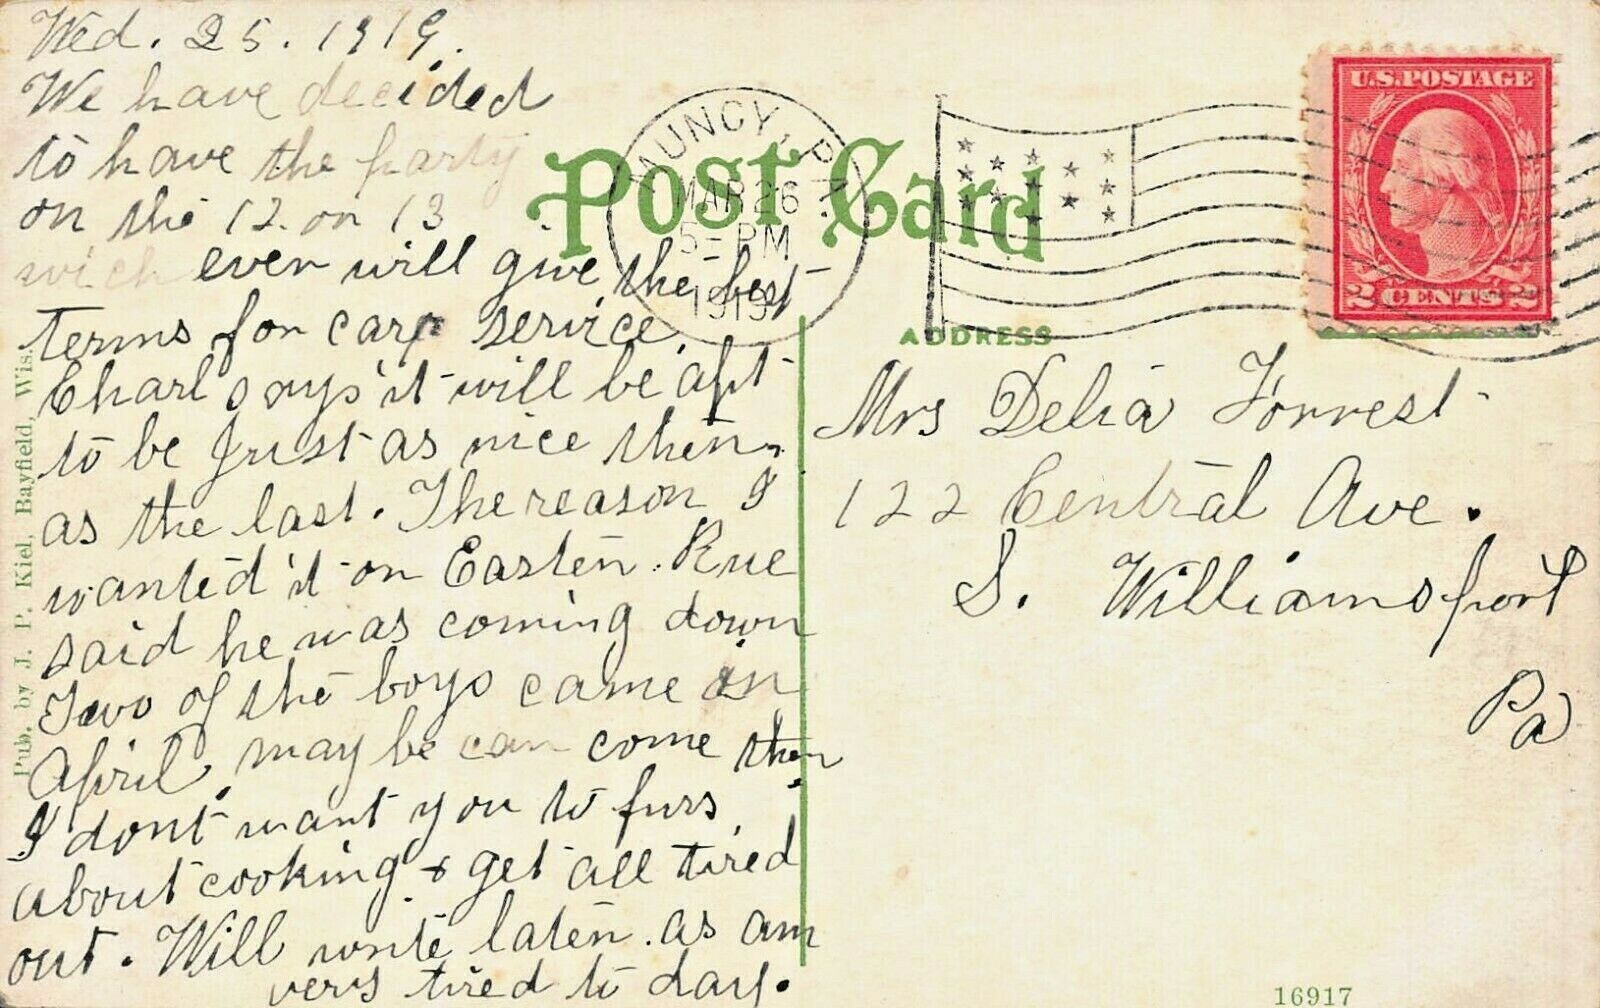 Wed. 25. 1919.
We have decided
to have the party
on the 12. or 13
wich ever will give the best
terms for carp service.
Charl says it will be apt
to be just as nice then
as the last. The reason I
wanted it on Easter. Rue
said he was coming down
Two of the boys came in
April, may be can come then
I dont want you to furs
about cooking & get all tired
out. Will write later. as am
very tired to day.
POST CARD
MUNCY, PA.
MAR 26
5 - PM
1919
U.S. POSTAGE
2 CENTS 2
ADDRESS
Mrs Delia Forrest
122 Central Ave.
S. Williamsport
Pa
Pub. by J. P. Kiel, Bayfield, Wis.
16917